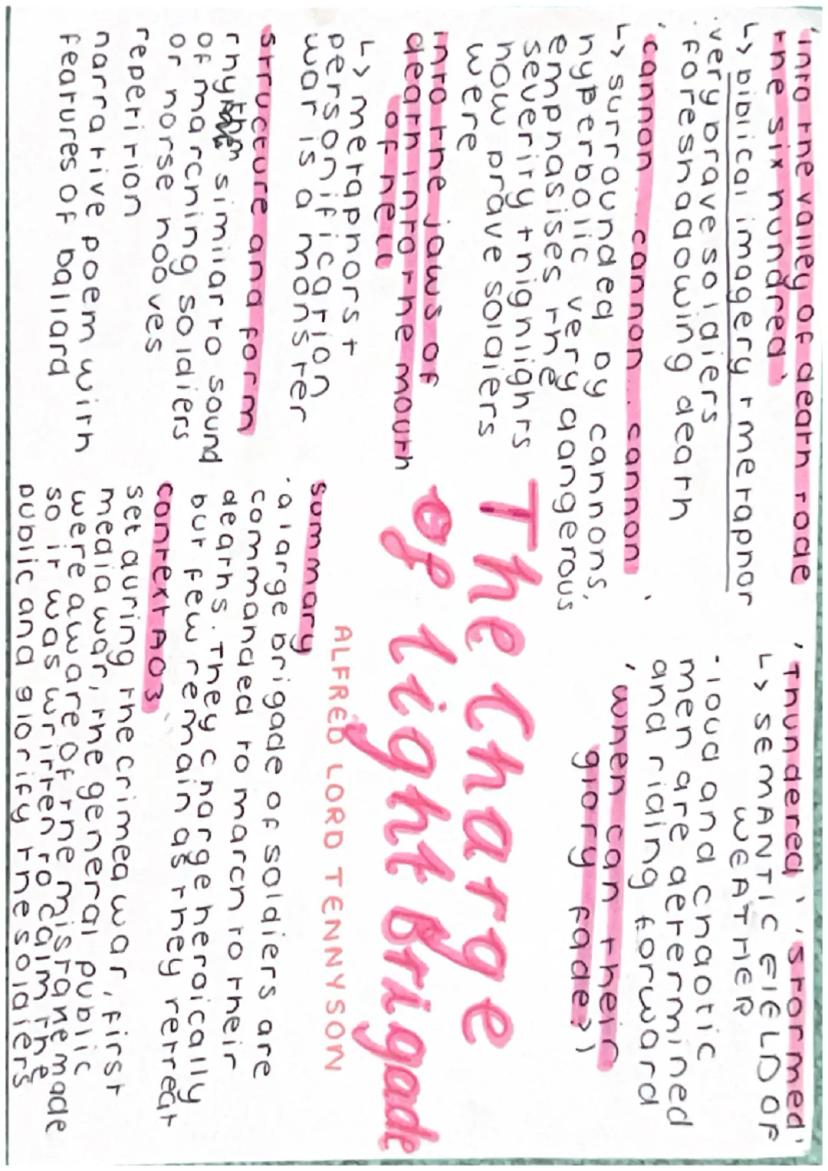 'into the valley of death rode
the six hundred'
↳ biblical imagery + metaphor
·very brave soldiers
·foreshadowing death
'cannon... cannon... cannon'
↳ surrounded by cannons,
hyperbolic very dangerous
emphasises the
severity + highlights
how brave soldiers
were
into the jaws of
death into the mouth
of hell
↳ metaphors +
personification
war is a monster
structure and form
rhythm similar to sound
of marching soldiers
or horse hooves
repetition
narrative poem with
features of ballard
'thundered', 'stormed'
↳ SEMANTIC FIELD OF
WEATHER
·loud and chaotic
men are determined
and riding forward
'when can their
glory fade?'
The Charge
of light Brigade
ALFRED LORD TENNYSON
summary
·a large brigade of soldiers are
commanded to march to their
deaths. They charge heroically
but few remain as they retreat
context AO3
set during the crimea war, first
media war, the general public
were aware of the mistake made
so it was written to calm the
public and glorify the soldiers